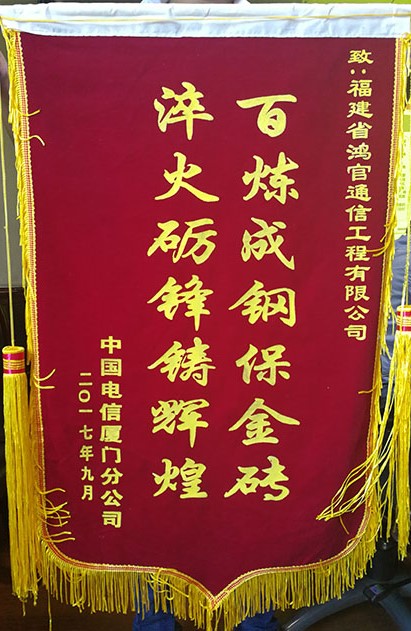 致：福建省鸿官通信工程有限公司
百炼成钢保金砖
淬火砺锋铸辉煌
中国电信厦门分公司
二〇一七年九月